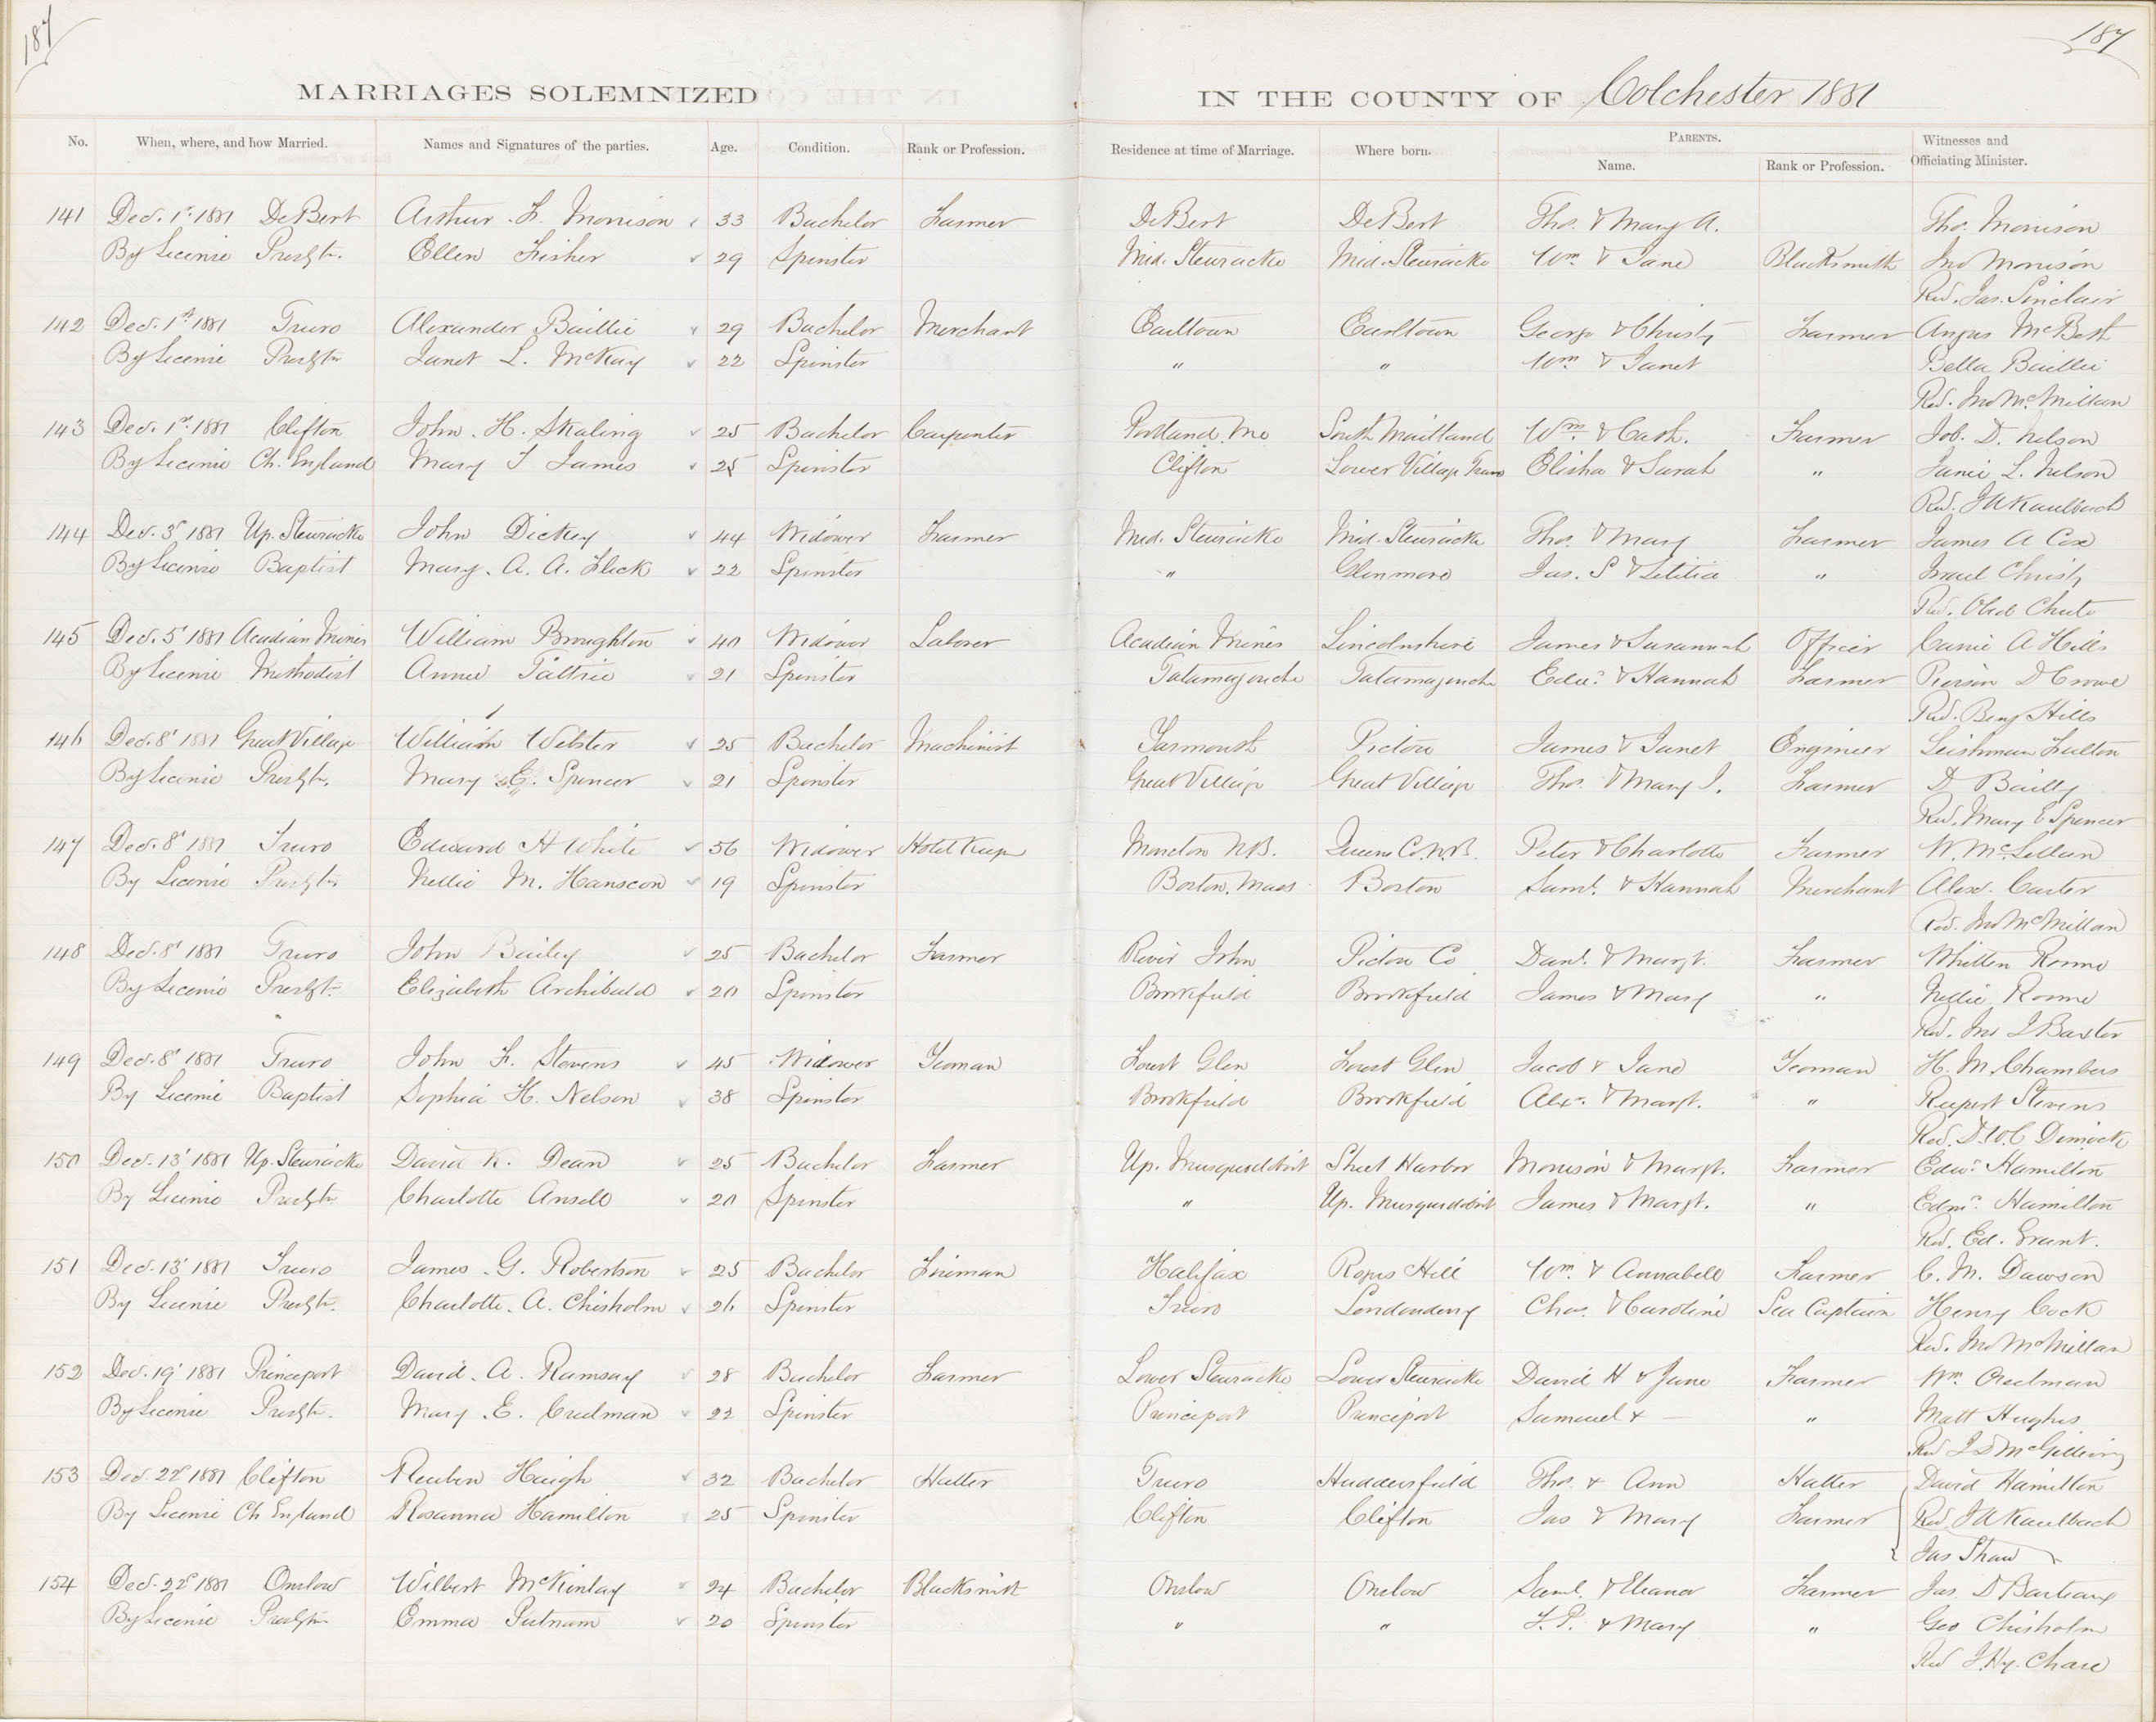 187
187
MARRIAGES SOLEMNIZED IN THE COUNTY OF Colchester 1881
No. When, where, and how Married. Names and Signatures of the parties. Age. Condition. Rank or Profession. Residence at time of Marriage. Where born. PARENTS. Name. Rank or Profession. Witnesses and Officiating Minister.
141 Dec. 1st 1881 DeBert Arthur F. Morrison 33 Bachelor Farmer DeBert DeBert Thos. & Mary A. Thos. Morrison
By License Presbtn. Ellen Fisher 29 Spinster Mid. Stewiacke Mid. Stewiacke Wm & Jane Blacksmith Jno Morrison
Rev. Jas. Sinclair
142 Dec. 1st 1881 Truro Alexander Baillie 29 Bachelor Merchant Earltown Earltown George & Christy Farmer Angus McBeth
By License Presbtn Janet L. McKay 22 Spinster " " Wm & Janet Bella Baillie
Rev. Jno McMillan
143 Dec. 1st 1881 Clifton John H. Skaling 25 Bachelor Carpenter Portland, Me South Maitland Wm & Cath. Farmer Job. D. Nelson
By License Ch. England Mary J James 25 Spinster Clifton Lower Village Truro Elisha & Sarah " Janie L. Nelson
Rev. J A Kaulbach
144 Dec. 3d 1881 Up. Stewiacke John Dickey 44 Widower Farmer Mid. Stewiacke Mid. Stewiacke Thos. & Mary Farmer James A Cox
By License Baptist Mary A. A. Fleck 22 Spinster " Glenmore Jas. S & Letitia " Israel Christy
Rev. Obed Chute
145 Dec. 5' 1881 Acadian Mines William Broughton 40 Widower Laborer Acadian Mines Lincolnshire James & Susannah Officer Carrie A Hills
By License Methodist Annie Taltrie 21 Spinster Tatamagouche Tatamagouche Edwd. & Hannah Farmer Pierson D Crowe
Rev. Benj Hills
146 Dec. 8' 1881 Great Village William Webster 25 Bachelor Machinist Yarmouth Pictou James & Janet Engineer Leishman Fulton
By License Presbtn. Mary E. Spencer 21 Spinster Great Village Great Village Thos. & Mary J. Farmer D Bailly
Rev. Mary E Spencer
147 Dec. 8' 1881 Truro Edward H White 56 Widower Hotel Keeper Moncton N.B. Queens Co. N.B. Peter & Charlotte Farmer W. McLellan
By License Presbtn Nellie M. Hanscon 19 Spinster Boston, Mass Boston Saml. & Hannah Merchant Alex. Carter
Rev. Jno McMillan
148 Dec. 8' 1881 Truro John Bailey 25 Bachelor Farmer River John Pictou Co Danl. & Margt. Farmer Whitten Roome
By License Presbtn Elizabeth Archibald 20 Spinster Brookfield Brookfield James & Mary " Nellie Roome
" Rev. Jno I Baxter
149 Dec. 8' 1881 Truro John F. Stevens 45 Widower Yeoman Forest Glen Forest Glen Jacob & Jane Yeoman H. M. Chambers
By License Baptist Sophia H. Nelson 38 Spinster Brookfield Brookfield Alexr. & Margt. " Rupert Stevens
Rev. D. W. C Dimock
150 Dec. 13' 1881 Up. Stewiacke David K. Dean 25 Bachelor Farmer Up. Musquodoboit Sheet Harbor Morrison & Margt. Farmer Edwd. Hamilton
By License Presbtn Charlotte Ansell 20 Spinster " Up. Musquodoboit James & Margt. " Edmd. Hamilton
Rev. Ed. Grant.
151 Dec. 13' 1881 Truro James G. Robertson 25 Bachelor Fireman Halifax Rogers Hill Wm. & Annabell Farmer C. M. Dawson
By License Presbtn. Charlotte A. Chisholm 26 Spinster Truro Londonderry Chas. & Caroline Sea Captain Henry Cock
Rev. Jno McMillan
152 Dec. 19' 1881 Princeport David A. Ramsay 28 Bachelor Farmer Lower Stewiacke Lower Stewiacke David H & Jane Farmer Wm. Creelman
By License Presbtn. Mary E. Creelman 22 Spinster Princeport Princeport Samuel & — " Matt Hughes
Rev J D McGillivray
153 Dec. 22d 1881 Clifton Reuben Haigh 32 Bachelor Hatter Truro Huddersfield Thos. & Ann Hatter David Hamilton
By License Ch England Rosanna Hamilton 25 Spinster Clifton Clifton Jas & Mary Farmer Rev J A Kaulbach
Jas Shaw
154 Dec. 22d 1881 Onslow Wilbert McKinlay 24 Bachelor Blacksmith Onslow Onslow Saml. & Eleanor Farmer Jas. D
By License Presbtn Emma Putnam 20 Spinster " " F. P. & Mary " Geo Chisholm
Rev J. Hy. Chase